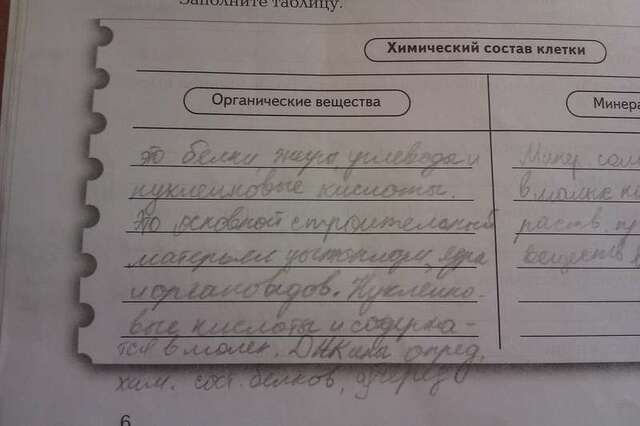 Заполните таблицу.
Химический состав клетки
Органические вещества
Минера
это белки, жиры, углеводы и
нуклеиновые кислоты.
Это основной строительный
материал цитоплазмы, ядра
и органоидов. Нуклеино-
вые кислоты и содержа-
тся в молек. ДНК опред.
хим. сост. белков,
Минер. сол
в малых
раств.
веществ
6